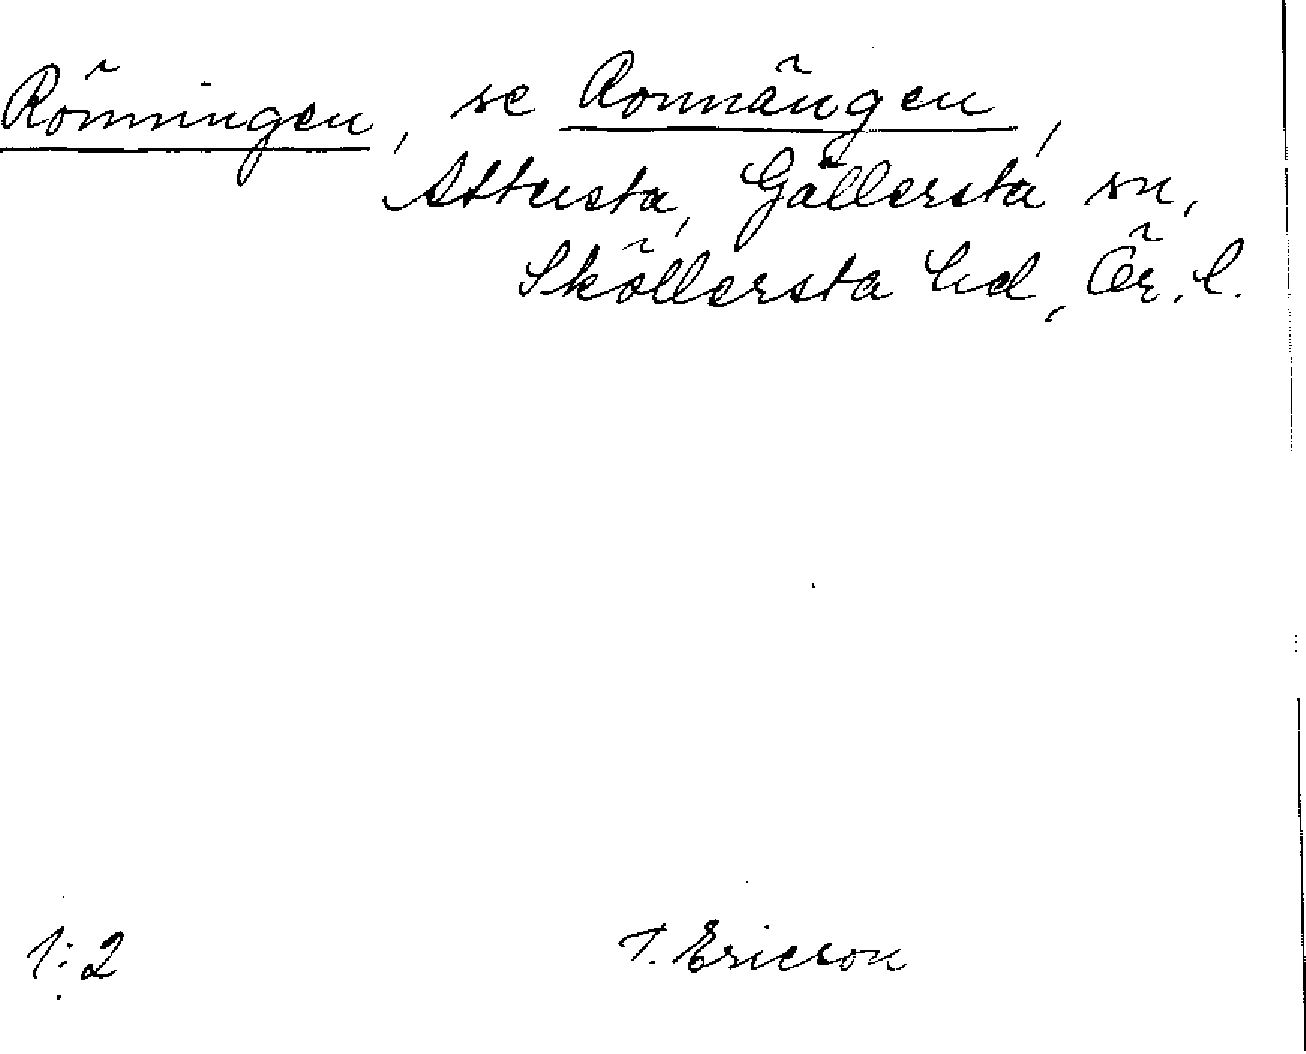 Rönningen, se Ronnängen,
Attersta, Gällersta sn,
Sköllersta hd, Ör. l.
1:2 T. Ericson